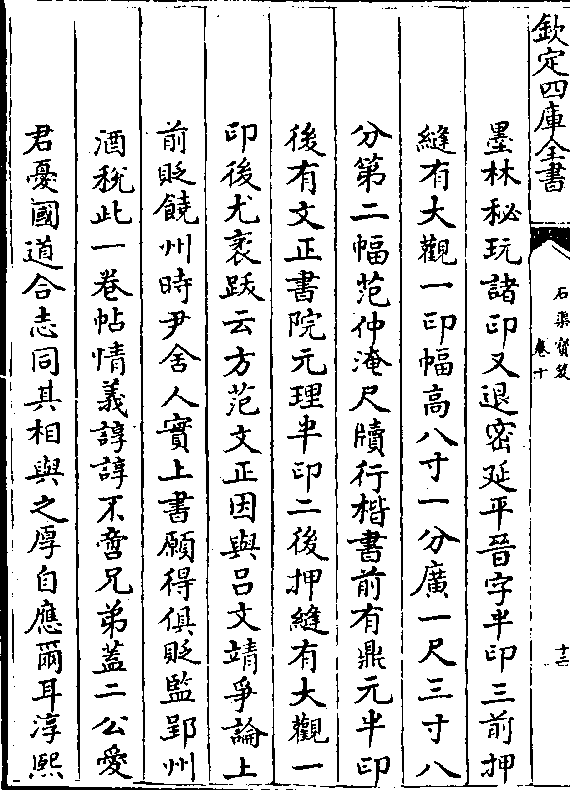 欽定四庫全書
石渠寳笈
卷十
十三
墨林秘玩諸印又退密延平晉字半印三前押
縫有大觀一印幅髙八寸一分廣一尺三寸八
分第二幅范仲淹尺牘行楷書前有鼎元半印
後有文正書院元理半印二後押縫有大觀一
印後尤袤跋云方范文正因與吕文靖爭論上
前貶饒州時尹舍人實上書願得俱貶監郢州
酒稅此一卷帖情義諄諄不啻兄弟蓋二公愛
君憂國道合志同其相與之厚自應爾耳淳熙